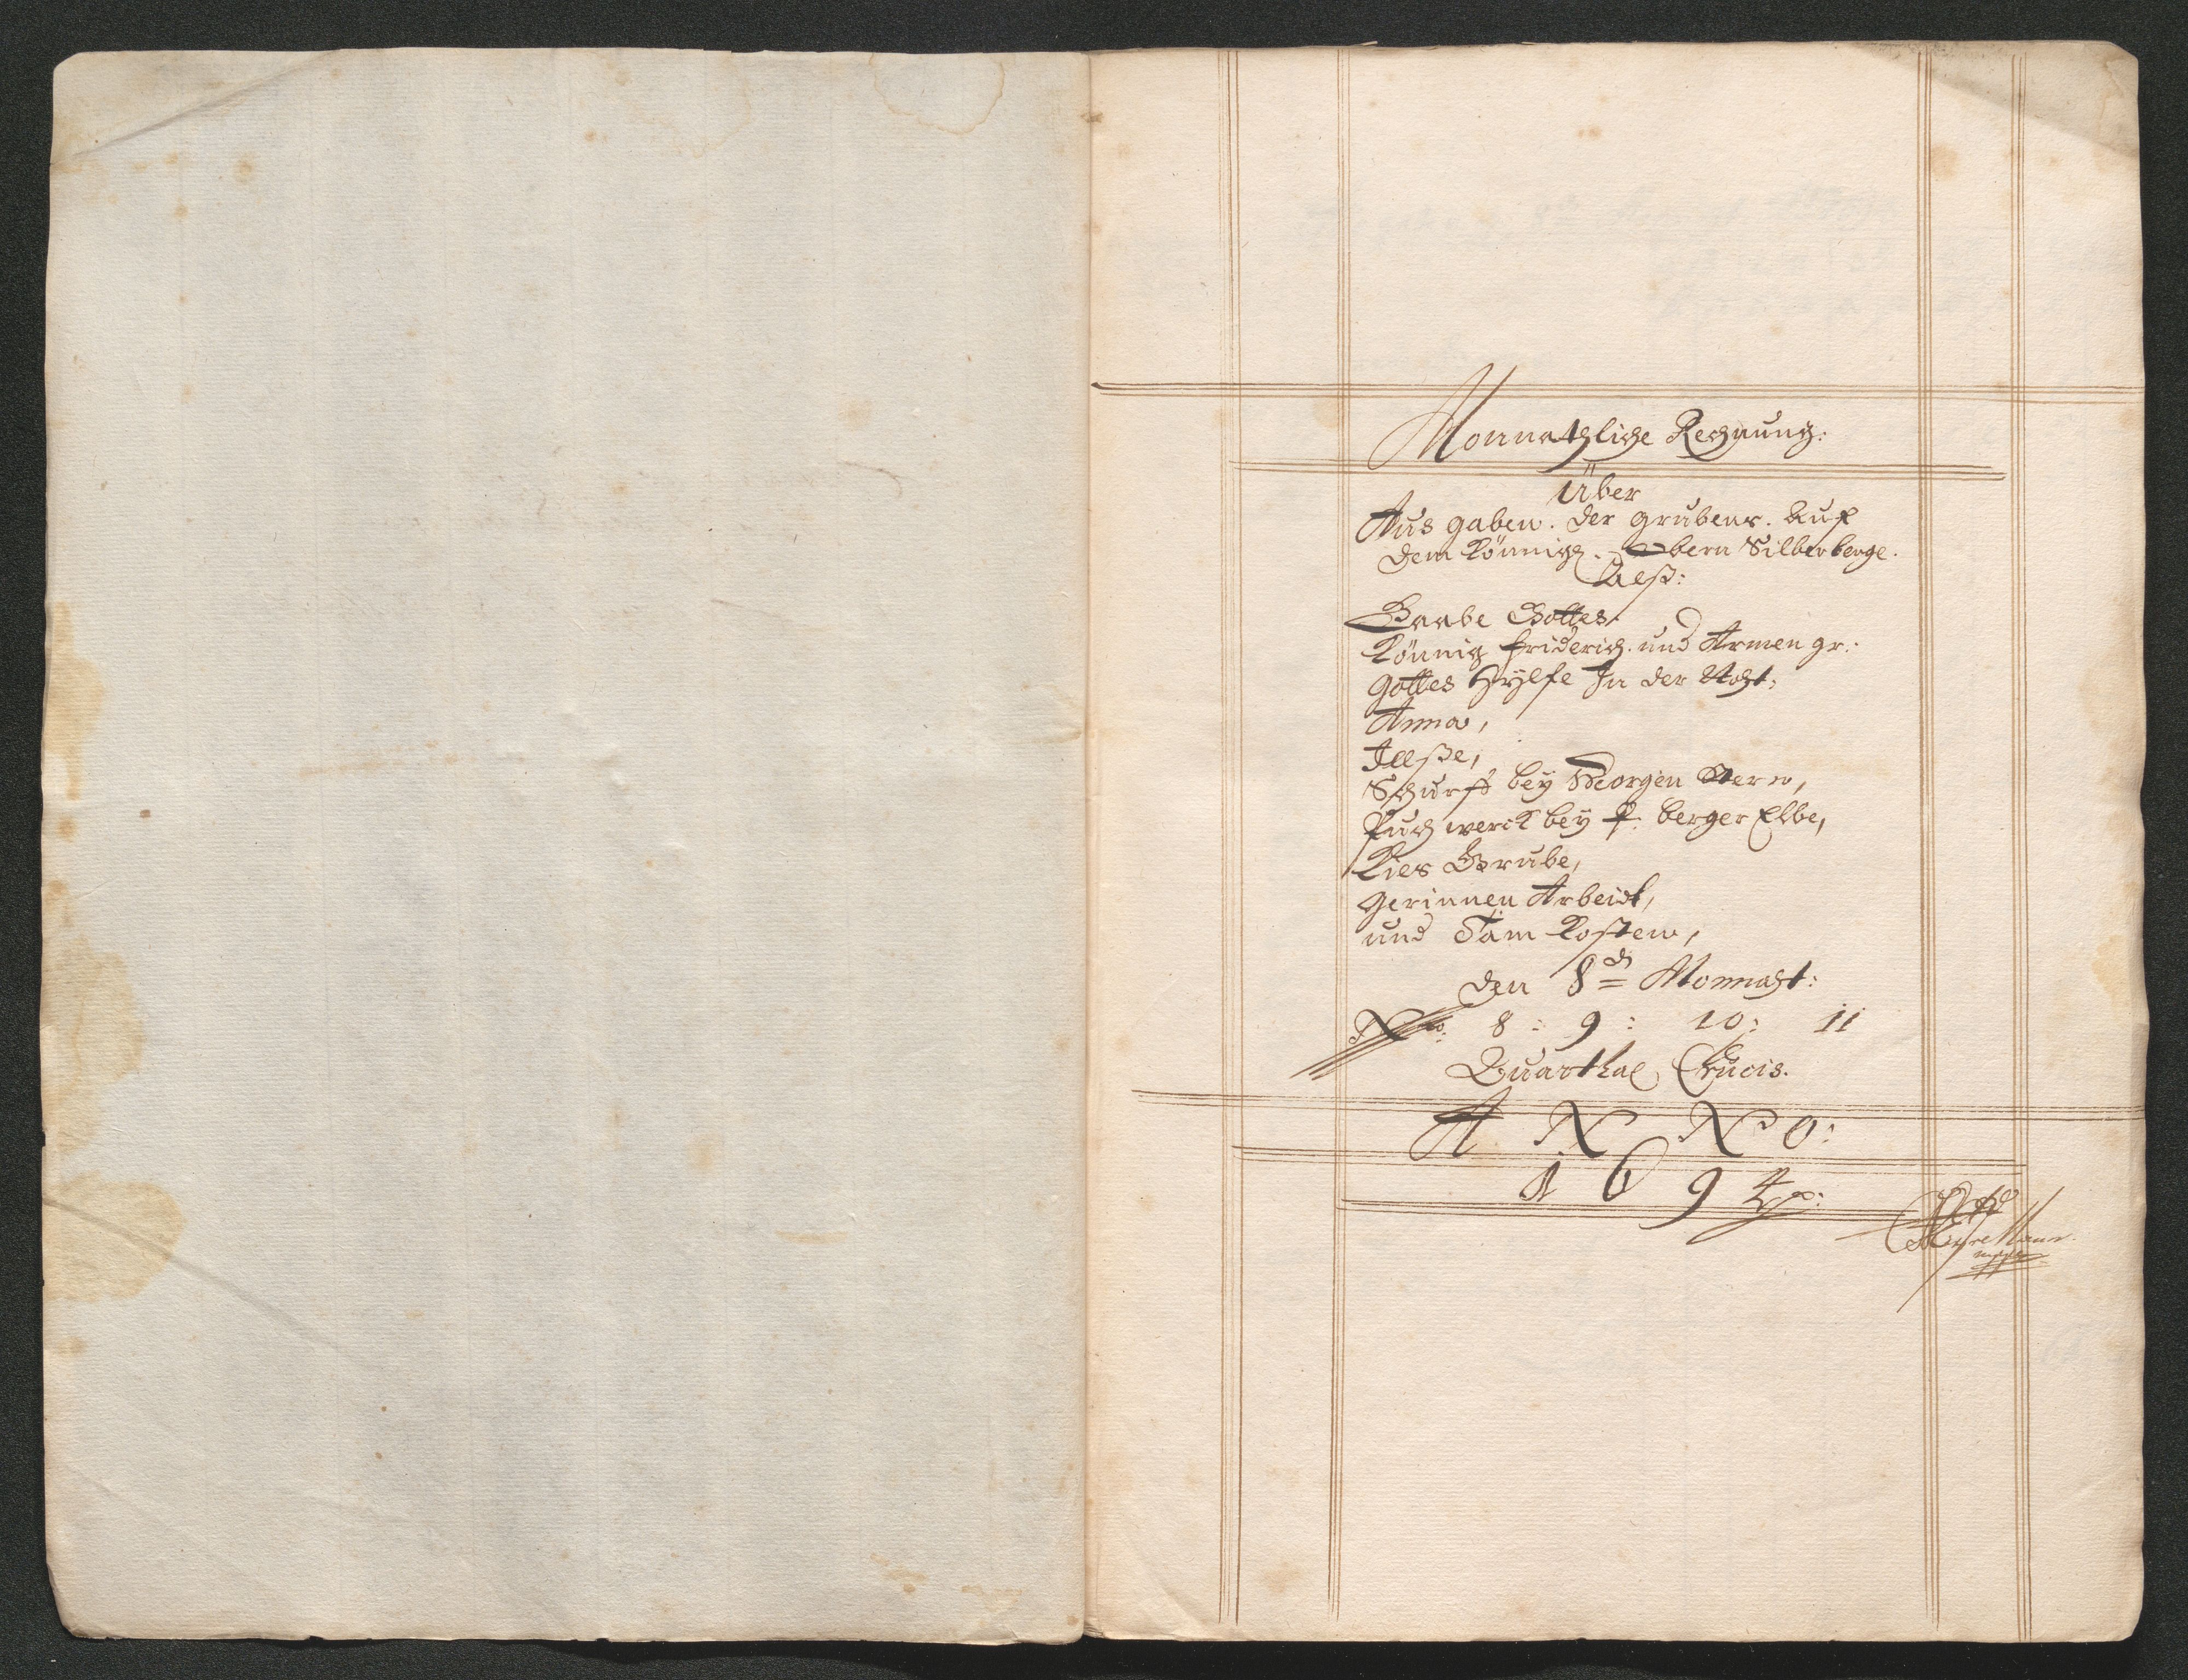 Monnathliche Rechnung:
Über
Aus gaben. der grubens. Auf
dem Könnigl. Obern Silberberge.
Alß:
Gaabe Gottes.
Könnig friderich. und Armen gr:
Gottes Hylfe In der Noht,
Anna,
Illße,
Schurff bey Georgen
Puch werck bey berger Elbe,
Kies Grube,
gerinnen Arbeidt,
und Täm Kosten,
den 8d Monnaht:
No: 8: 9: 10: 11
Quarthal Crucis.
ANNO:
1694